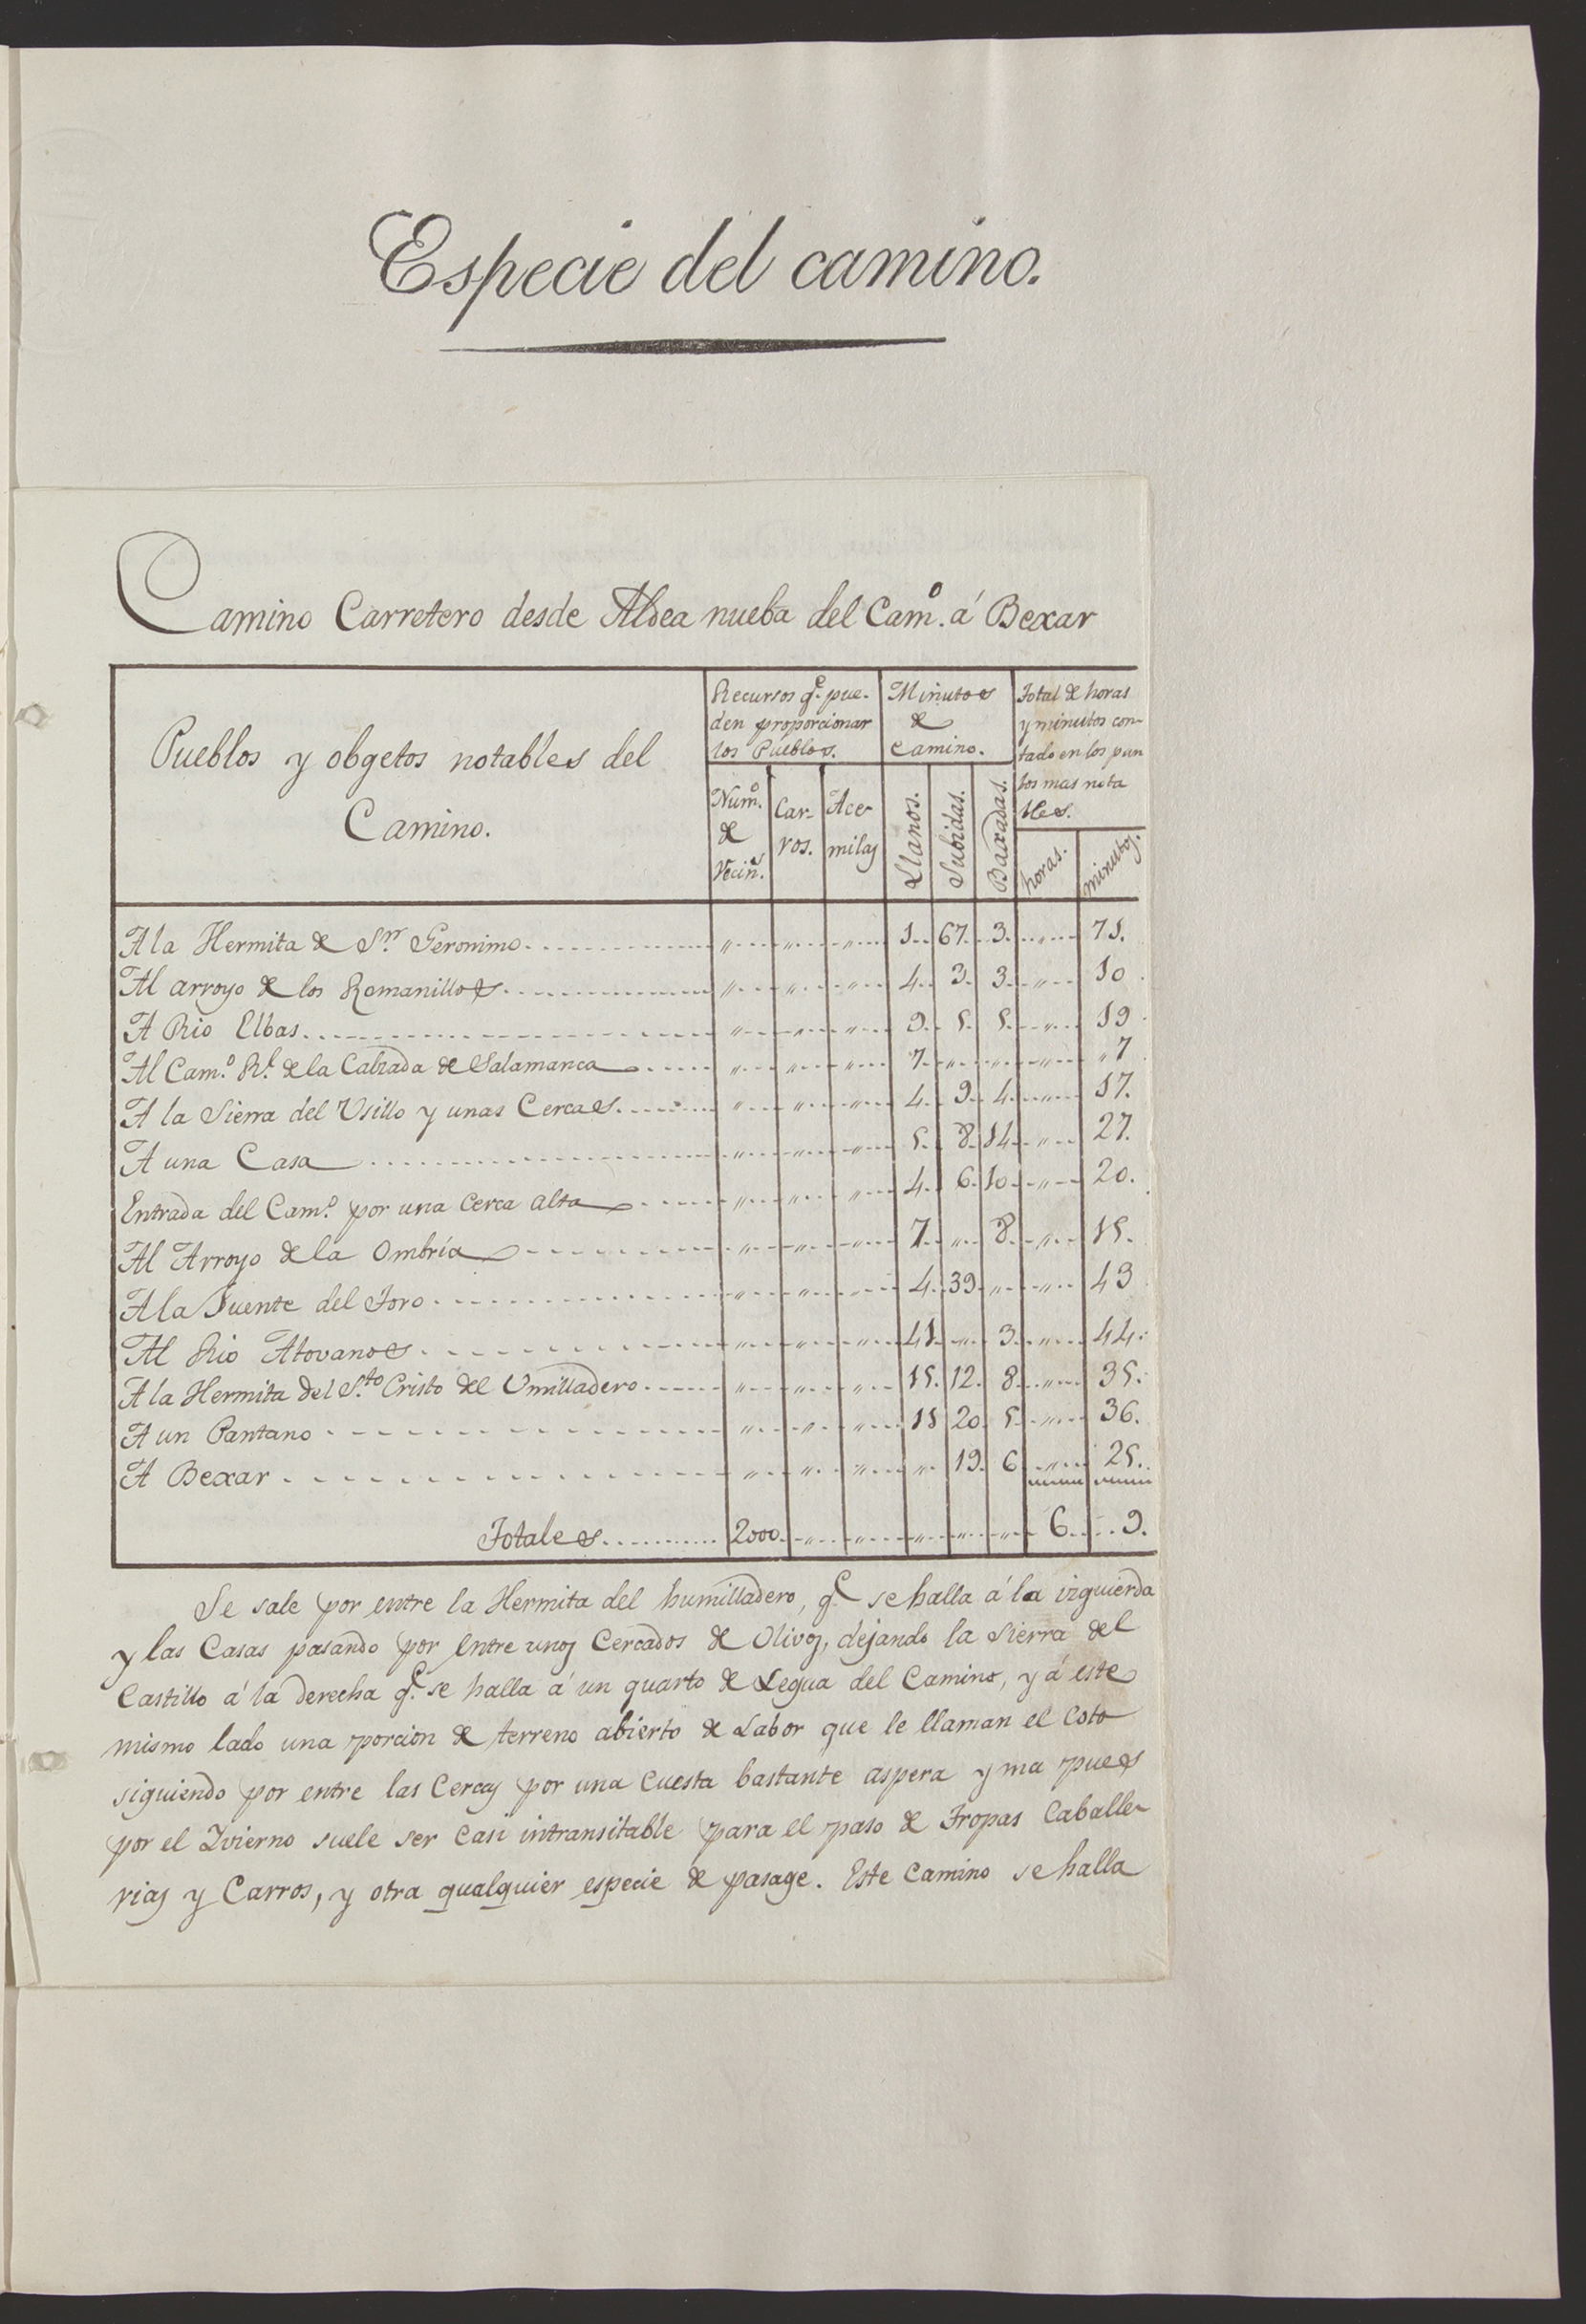 Especie del camino.
Camino Carretero desde Aldea nueba del Camº. á Bexar
Pueblos y obgetos notables del
Camino.
Recursos qᵉ. pue-
den proporcionar
los Pueblos.
Minutos
de
camino.
Total de horas
y minutos con-
tado en los pun
tos mas nota
bles.
Numº.
de
Vecinˢ.
Car-
ros.
Ace-
milas
Llanos.
Subidas.
Baxadas.
horas.
minutos.
A la Hermita de Sⁿʳ Geronimo. „ „ „ 1. 67. 3. „ 71.
Al arroyo de los Romanillos. „ „ „ 4. 3. 3. „ 10.
A Rio Elbas. „ „ „ 9. 5. 5. „ 19.
Al Camº. Rˡ. de la Calzada de Salamanca „ „ „ 7. „ „ „ „7.
A la Sierra del Usillo y unas Cercas. „ „ „ 4. 9. 4. „ 17.
A una Casa „ „ „ 5. 8. 14. „ 27.
Entrada del Camº. por una Cerca alta „ „ „ 4. 6. 10. „ 20.
Al Arroyo de la Ombría „ „ „ 7. „ 8. „ 15.
A la Fuente del Toro. „ „ „ 4. 39. „ „ 43.
Al Rio Atovanos. „ „ „ 41. „ 3. „ 44.
A la Hermita del Sᵗᵒ. Cristo del Umilladero. „ „ „ 15. 12. 8. „ 35.
A un Pantano „ „ „ 11 20. 5. „ 36.
A Bexar. „ „ „ „ 19. 6 „ 25.
Totales. 2000. „ „ „ „ „ 6. 9.
Se sale por entre la Hermita del humilladero, qᵉ se halla á la izguierda
y las Casas pasando por entre unos Cercados de Olivos, dejando la Sierra del
Castillo á la derecha qᵉ. se halla á un quarto de Legua del Camino, y á este
mismo lado una porcion de terreno abierto de Labor que le llaman el Coto
siguiendo por entre las Cercas por una Cuesta bastante aspera y ma pues
por el Ivierno suele ser Casi intransitable para el paso de Tropas Caballe-
rias y Carros, y otra qualquier especie de pasage. Este Camino se halla